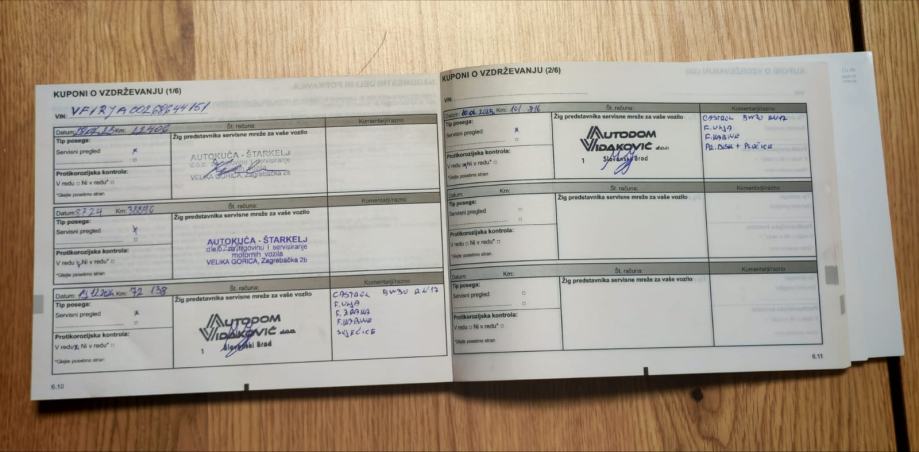 KUPONI O VZDRŽEVANJU (1/6)
VIN: VF1RJA00268644151
Datum: Km: 
Št. računa:
Komentarji/razno
Tip posega:
Servisni pregled x
Žig predstavnika servisne mreže za vaše vozilo
AUTOKUĆA - ŠTARKELJ
VELIKA GORICA, Zagrebačka 2b
Protikorozijska kontrola:
V redu □ Ni v redu* □
*Glejte posebno stran
Datum: 3.7.24 Km:
Št. računa:
Komentarji/razno
Tip posega:
Servisni pregled x
Žig predstavnika servisne mreže za vaše vozilo
AUTOKUĆA - ŠTARKELJ
d.o.o. za trgovinu i servisiranje
motornih vozila
VELIKA GORICA, Zagrebačka 2b
Protikorozijska kontrola:
V redu Ni v redu* □
*Glejte posebno stran
Datum: Km: 72 138
Št. računa:
Komentarji/razno
Tip posega:
Servisni pregled x
Žig predstavnika servisne mreže za vaše vozilo
AUTODOM
VIDAKOVIĆ d.o.o.
1 Slavonski Brod
CASTROL 5W30 RN17
F. ULJA
F. ZRAKA
F. KABINE
SVJEĆICE
Protikorozijska kontrola:
V redu x Ni v redu* □
*Glejte posebno stran
6.10
KUPONI O VZDRŽEVANJU (2/6)
VIN:
Datum: Km: 101 316
Št. računa:
Komentarji/razno
Tip posega:
Servisni pregled x
Žig predstavnika servisne mreže za vaše vozilo
AUTODOM
VIDAKOVIĆ d.o.o.
1 Slavonski Brod
CASTROL 5W30 RN17
F. ULJA
F. KABINE
PR. DISK + PLOČICE
Protikorozijska kontrola:
V redu Ni v redu* □
*Glejte posebno stran
Datum: Km:
Št. računa:
Komentarji/razno
Tip posega:
Servisni pregled □
Žig predstavnika servisne mreže za vaše vozilo
Protikorozijska kontrola:
V redu □ Ni v redu* □
*Glejte posebno stran
Datum: Km:
Št. računa:
Komentarji/razno
Tip posega:
Servisni pregled □
Žig predstavnika servisne mreže za vaše vozilo
Protikorozijska kontrola:
V redu □ Ni v redu* □
*Glejte posebno stran
6.11